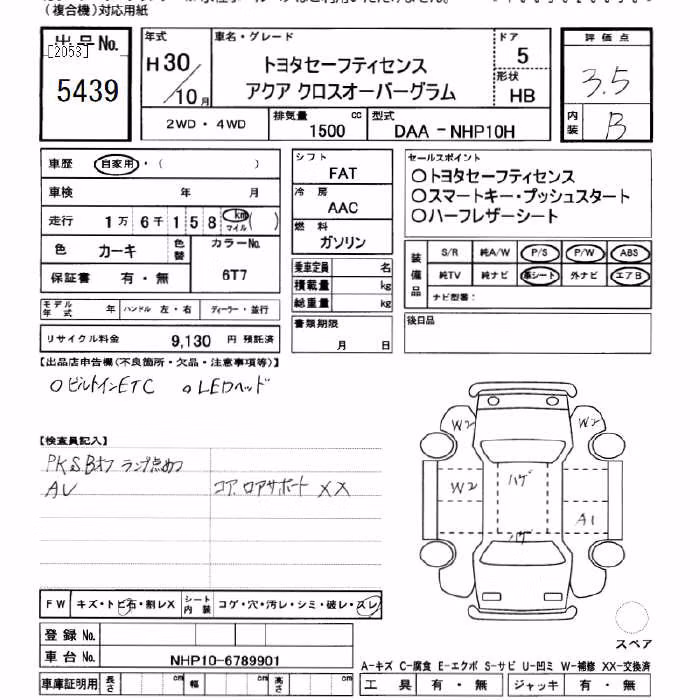 (複合機)対応用紙
出品No.
[2053]
5439
年式
H30/10月
車名・グレード
トヨタセーフティセンス
アクア クロスオーバーグラム
ドア
5
形状
HB
2WD・4WD
排気量
1500 cc
型式
DAA-NHP10H
評価点
3.5
内装
B
車歴 自家用・( )
車検 年 月
走行 1万6千158 km マイル ( )
色 カーキ 色替 カラーNo. 6T7
保証書 有・無
モデル年式 年 ハンドル 左・右 ディーラー・並行
リサイクル料金 9,130 円 預託済
シフト
FAT
冷房
AAC
燃料
ガソリン
乗車定員 名
積載量 kg
総重量 kg
書類期限
月 日
セールスポイント
○トヨタセーフティセンス
○スマートキー・プッシュスタート
○ハーフレザーシート
装備品
S/R 純A/W P/S P/W ABS
純TV 純ナビ 革シート 外ナビ エアB
ナビ型番:
後日品
【出品店申告欄(不良箇所・欠品・注意事項等)】
○ビルトインETC ○LEDヘッド
【検査員記入】
PKSBオフ ランプ点めつ
AU
コア.ロアサポート XX
W2 W2
W2 ハゲ
A1
ハゲ
スペア
FW キズ・トビ石・割レX シート内装 コゲ・穴・汚レ・シミ・破レ・スレ
登録No.
車台No. NHP10-6789901
車庫証明用 長さ cm 幅 cm 高さ cm
A-キズ C-腐食 E-エクボ S-サビ U-凹ミ W-補修 XX-交換済
工具 有・無 ジャッキ 有・無